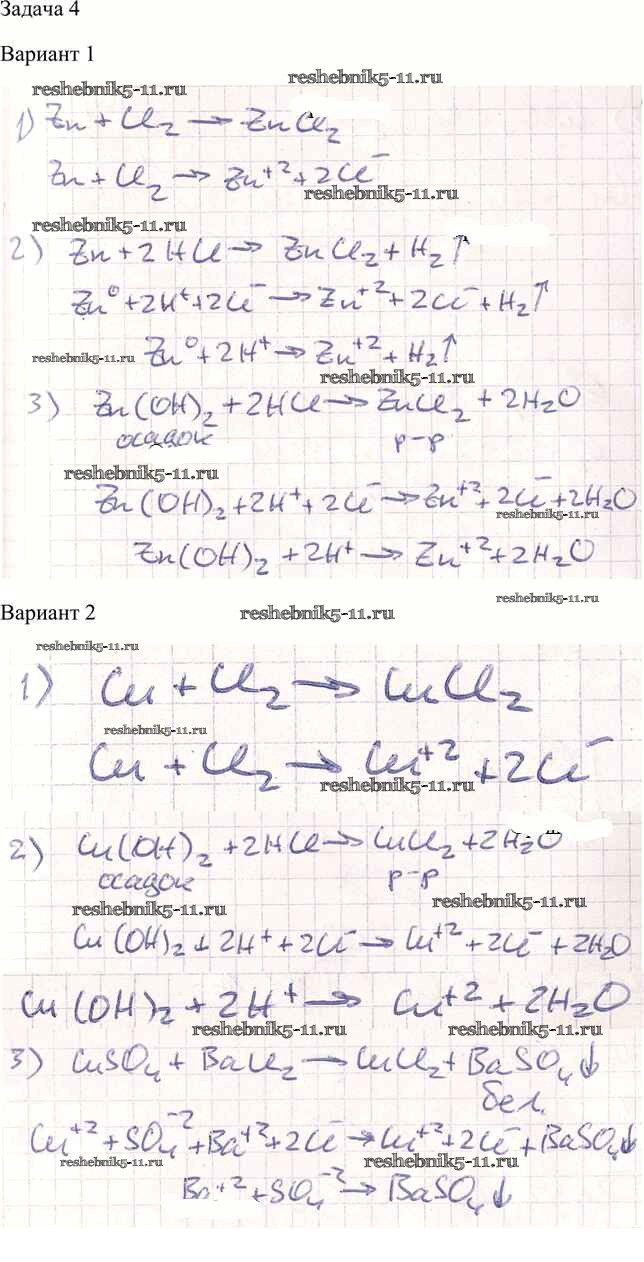 Задача 4
Вариант 1
reshebnik5-11.ru reshebnik5-11.ru
1) Zn + Cl₂ → ZnCl₂
Zn + Cl₂ → Zn⁺² + 2Cl⁻
reshebnik5-11.ru
reshebnik5-11.ru
2) Zn + 2HCl → ZnCl₂ + H₂↑
Zn⁰ + 2H⁺ + 2Cl⁻ → Zn⁺² + 2Cl⁻ + H₂↑
reshebnik5-11.ru Zn⁰ + 2H⁺ → Zn⁺² + H₂↑
reshebnik5-11.ru
3) Zn(OH)₂ + 2HCl → ZnCl₂ + 2H₂O
осадок р-р
reshebnik5-11.ru
Zn(OH)₂ + 2H⁺ + 2Cl⁻ → Zn⁺² + 2Cl⁻ + 2H₂O
reshebnik5-11.ru
Zn(OH)₂ + 2H⁺ → Zn⁺² + 2H₂O
reshebnik5-11.ru
Вариант 2 reshebnik5-11.ru
reshebnik5-11.ru
1) Cu + Cl₂ → CuCl₂
reshebnik5-11.ru
Cu + Cl₂ → Cu⁺² + 2Cl⁻
reshebnik5-11.ru
2) Cu(OH)₂ + 2HCl → CuCl₂ + 2H₂O
осадок р-р
reshebnik5-11.ru reshebnik5-11.ru
Cu(OH)₂ + 2H⁺ + 2Cl⁻ → Cu⁺² + 2Cl⁻ + 2H₂O
Cu(OH)₂ + 2H⁺ → Cu⁺² + 2H₂O
reshebnik5-11.ru reshebnik5-11.ru
3) CuSO₄ + BaCl₂ → CuCl₂ + BaSO₄↓
бел.
Cu⁺² + SO₄⁻² + Ba⁺² + 2Cl⁻ → Cu⁺² + 2Cl⁻ + BaSO₄↓
reshebnik5-11.ru reshebnik5-11.ru
Ba⁺² + SO₄⁻² → BaSO₄↓